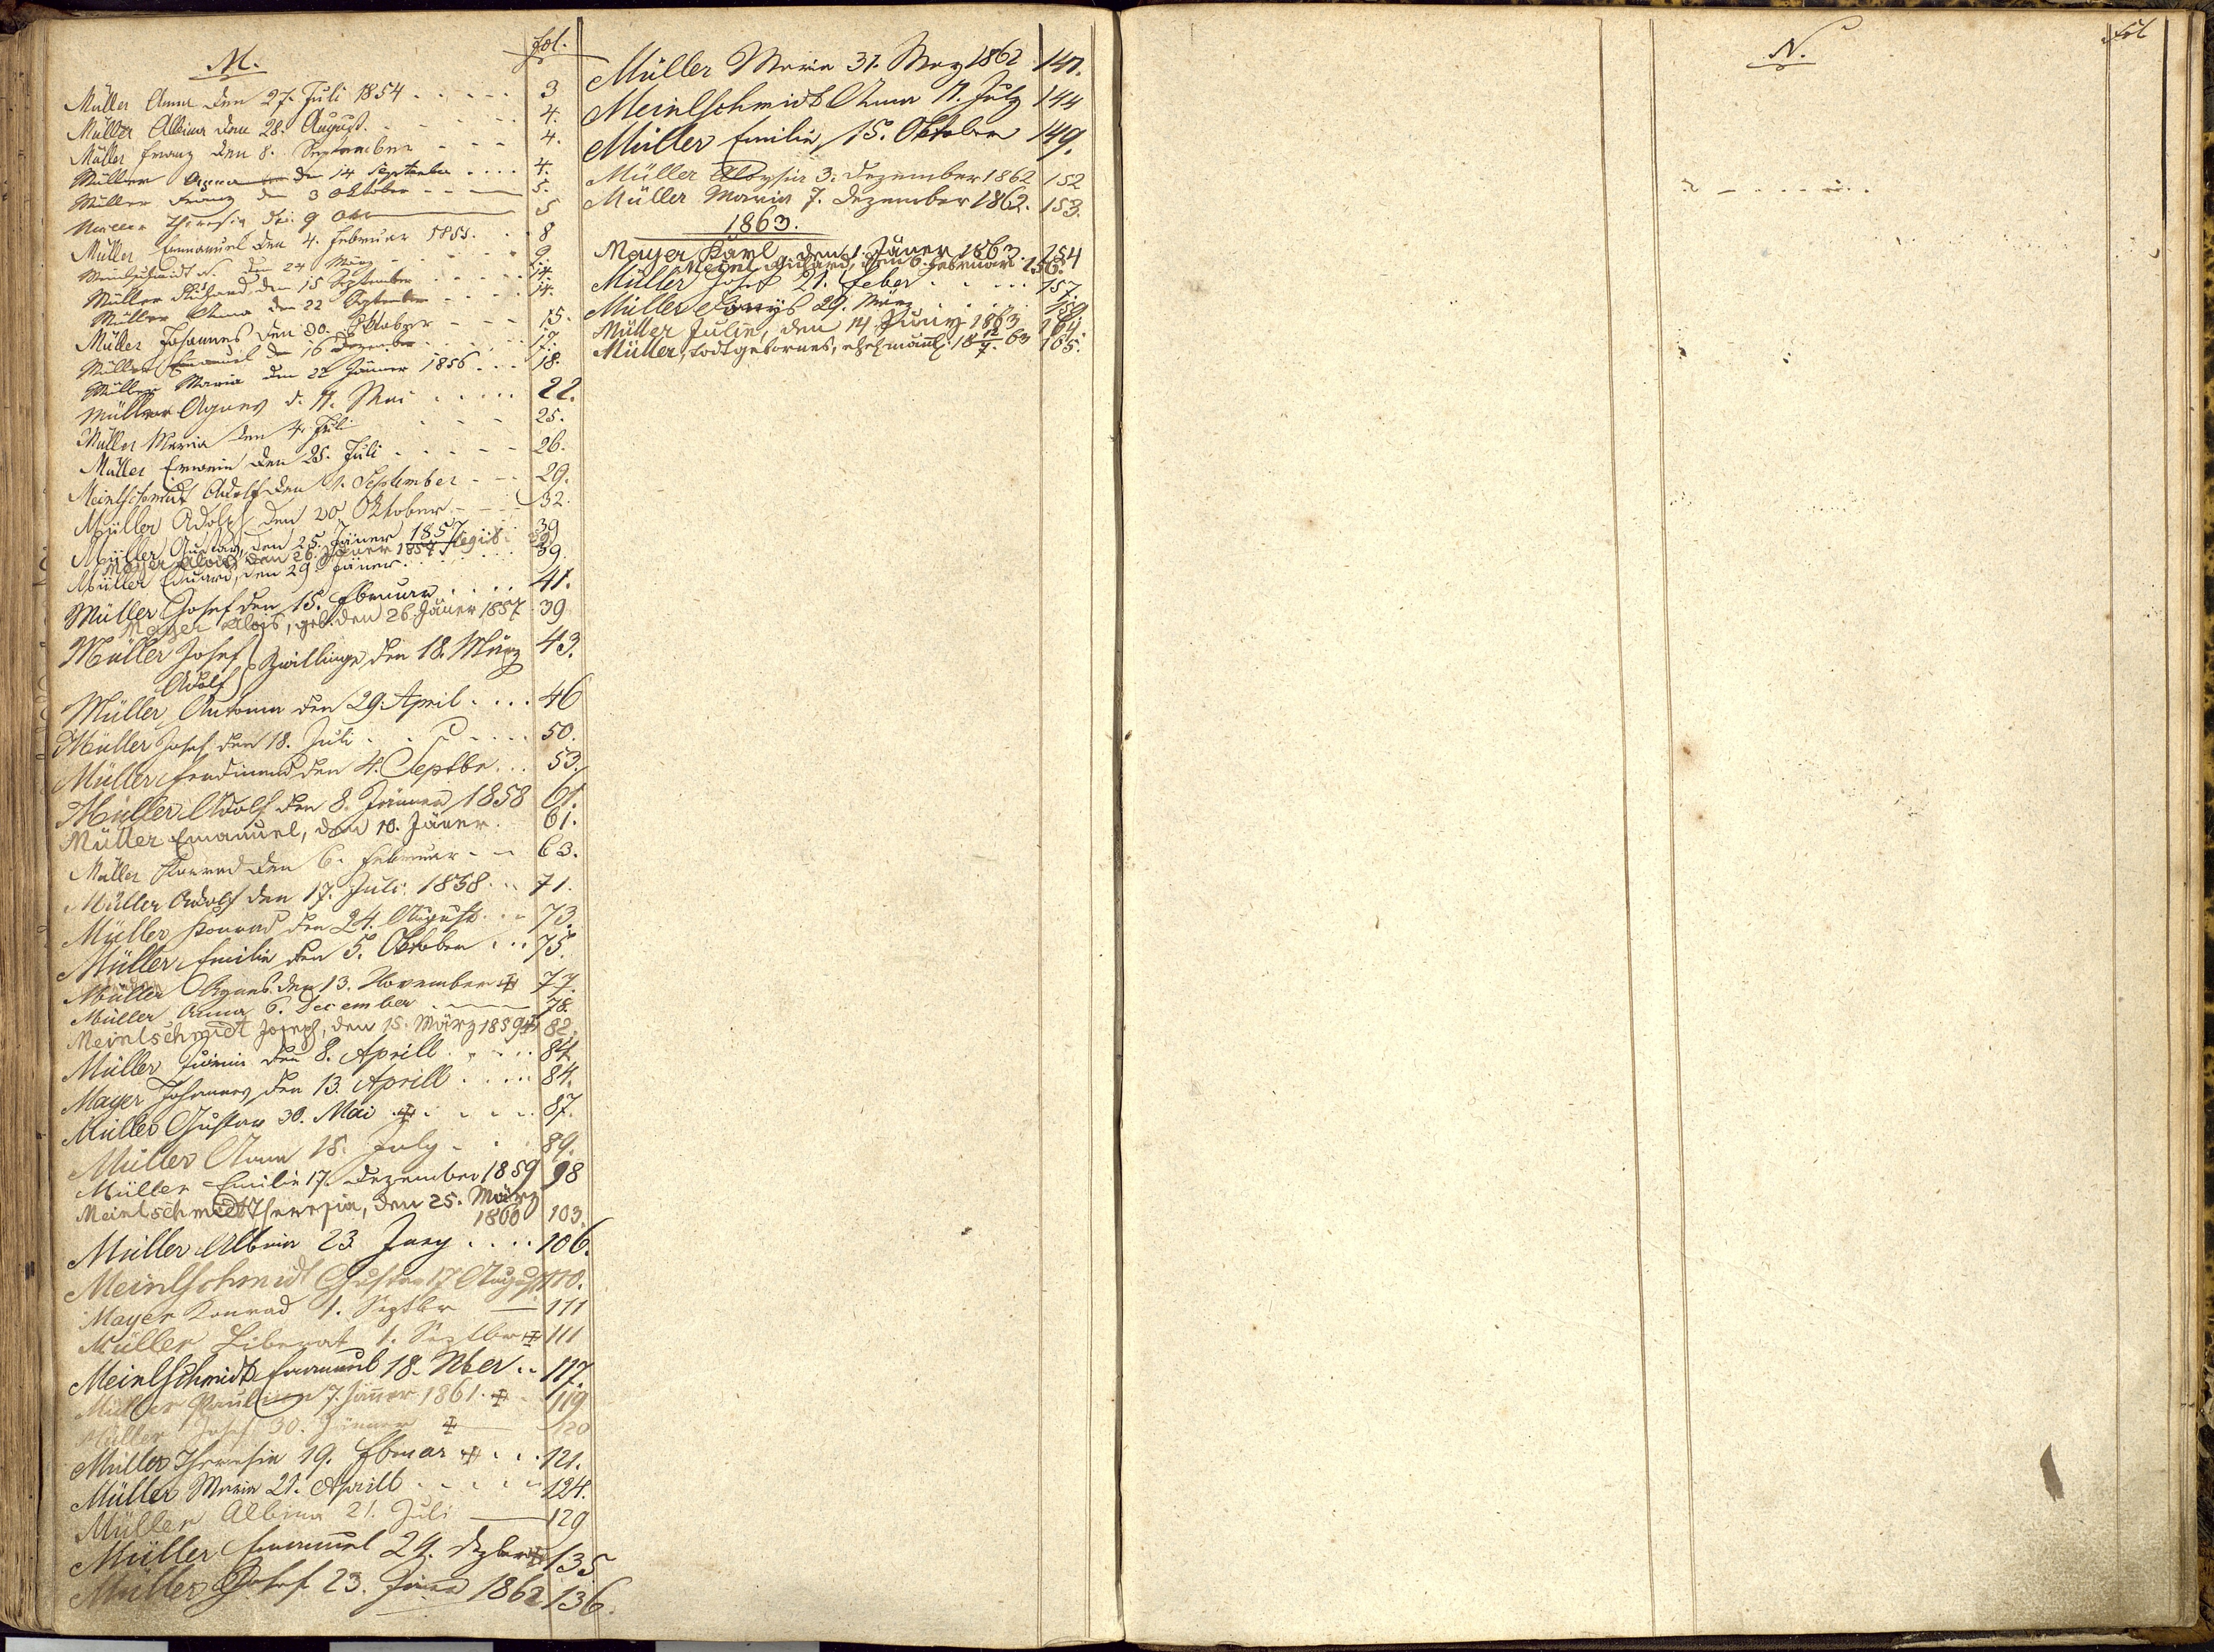 M.
fol.
Müller Anna den 27. Juli 1854 . . . . . 3
Müller Albina den 28. August. - - - - 4.
Müller Franz den 8. September - - - 4.
Müller Anna den 14 September . . . . 4.
Müller Franz den 3 Oktober - - - 5.
Müller Theresia den 9 Okt 5
Müller Emanuel den 4. Februar 1855. . . 8
Meinlschmidt N. den 24 März - - - - 9.
Müller Richard den 15 September . . . . 14.
Müller Anna den 22 September - - - . 14.
Müller Johannes den 30. Oktober - - - 15.
Müller Emanuel den 16 Dezember . . . . 17.
Müller Maria den 22 Jänner 1856 . . . 18.
Müller Agnes d. 11. Mai . . . . . 22.
Müller Maria den 4. Juli - - - 25.
Müller Erwein den 25. Juli . - - - - 26.
Meinlschmidt Adolf den 1. September - - - 29.
Müller Adolph den 20 Oktober - - - 32.
Müller Gustav, den 25. Jäner 1857 39
Mayer Alois den 26. Jäner 1857. legit. 39.
Müller Eduard, den 29 Jäner . . . . 39.
Müller Josef den 15. Februar . . . . 41.
Mayer Alois, geb. den 26 Jäner 1857 39
Müller Josef } Zwillinge, den 18. März 43.
Adolf
Müller Antonia den 29. April . . . . 46
Müller Josef den 18. Juli . . . . . . 50.
Müller Ferdinand den 4. Septbr. . . 53.
Müller Adolf den 8. Jänner 1858 61.
Müller Emanuel, den 10. Jäner. 61.
Müller Konrad den 6. Februar - - 63.
Müller Adolf den 17. Juli. 1858 . . . 71.
Müller Konrad den 24. August . . . 73.
Müller Emilie den 5. Oktober . . . 75.
Müller Agnes den 13. November ‡ 77.
Müller Anna 6. December . 78.
Meinlschmidt Joseph, den 15. März 1859 ‡ 82.
Müller den 8. Aprill . . . . . 84.
Mayer Johannes den 13. Aprill . . . . 84.
Müller Gustav 30. Mai ‡ . . . . . 87.
Müller Anna 18. July - . . 89.
Müller Emilie 17. Dezember 1859 98
Meinlschmidt Theresia, den 25. März
1860 103.
Müller Albin 23 Juny . . . . 106.
Meinlschmidt Gustav 17. August 110.
Mayer Konrad 1. Septbr — 111
Müller Liberat 1. Septbr ‡ 111
Meinlschmidt Emanuel 18. Nber . . 117.
Müller Paulina 7. Jäner 1861. ‡ 119
Müller Josef 30. Jänner ‡ 120
Müller Theresia 19. Februar ‡ . . . 121.
Müller Maria 21. Aprill . . . . . 124.
Müller Albina 21. Juli — 129
Müller Emanuel 24. Dzber ‡ 135
Müller Josef 23. Jäner 1862 136.
Müller Maria 31. May 1862 141.
Meinlschmidt Anna 11. July 144
Müller Emilie, 15. Oktober 149.
Müller Aloysia 3. Dezember 1862 152
Müller Maria 7. Dezember 1862. 153.
1863.
Mayer Karl, den 1. Jäner 1863. 154
Meinl Richard, den 6. Februar 156.
Müller Josef 21. Feber . . . . . 157
Müller 29. März . . . . 159
Müller Julie, den 14 Juny 1863 164.
Müller, todtgebornes, ehel. männl. 18 12/7. 63 165.
N.
Fol